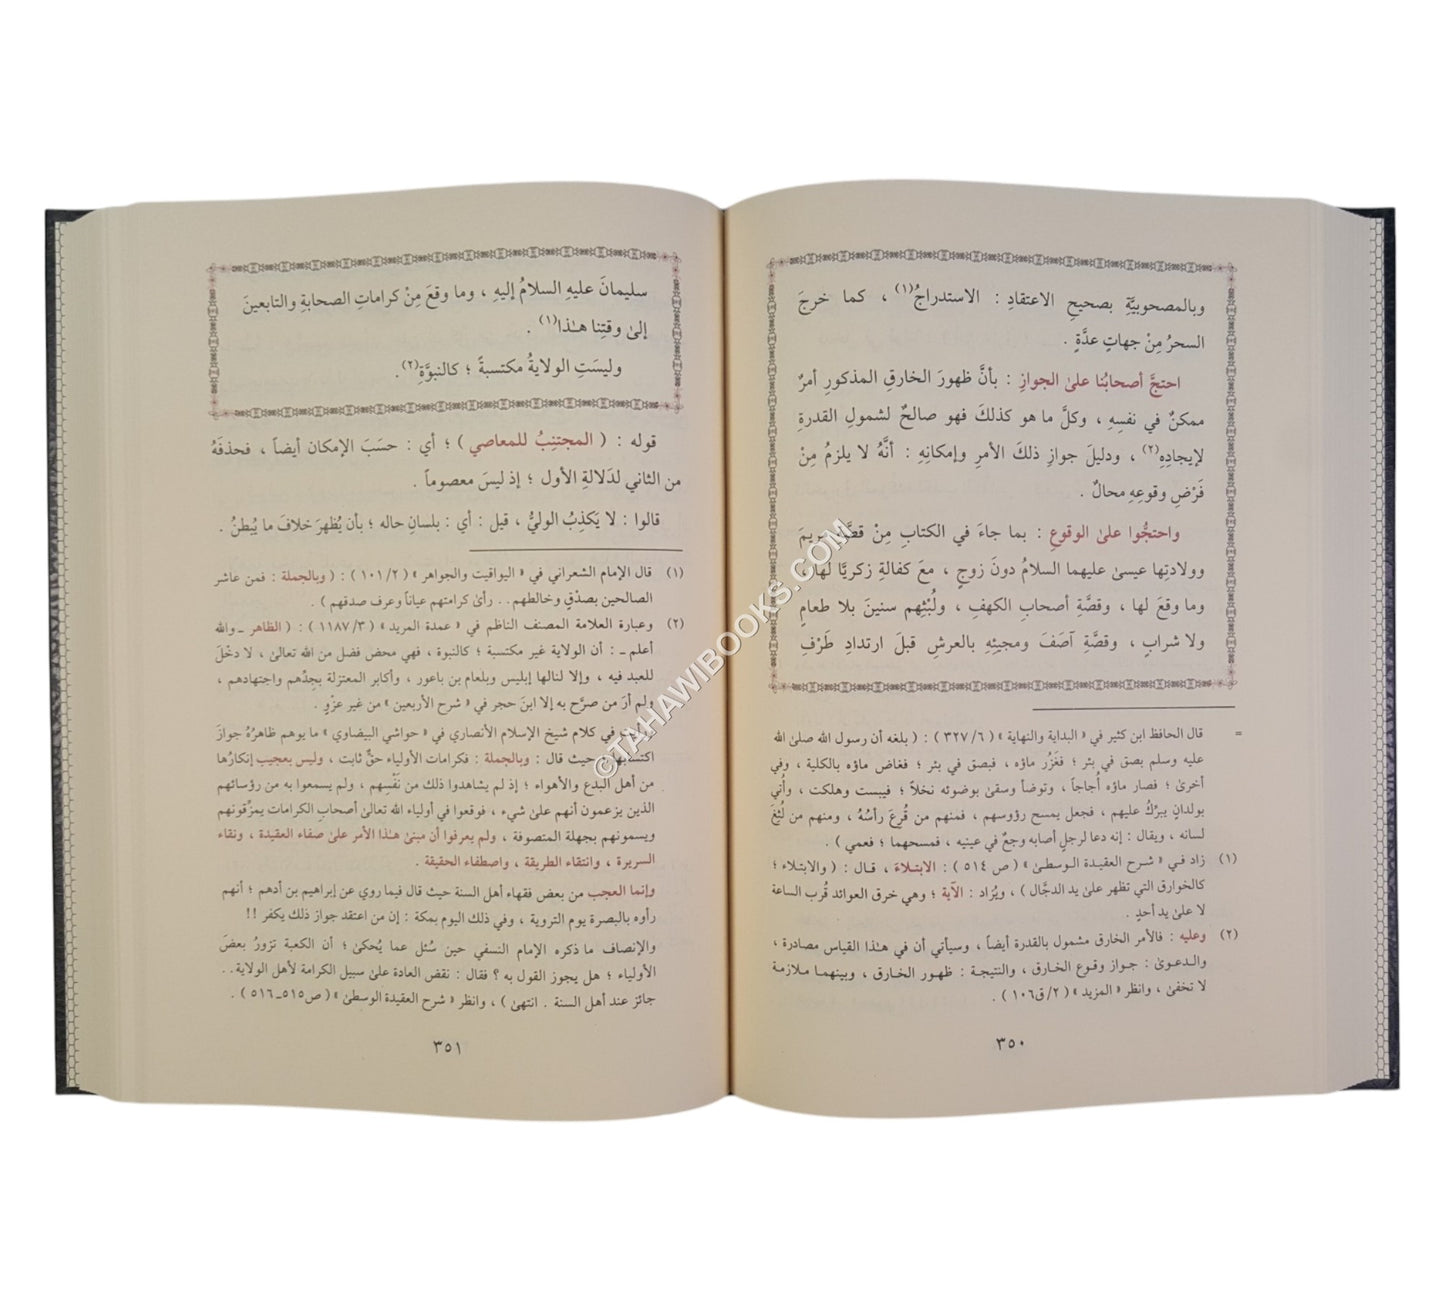 وبالمصحوبيَّةِ بصحيحِ الاعتقادِ : الاستدراجُ(١) ، كما خرجَ
السحرُ مِنْ جهاتٍ عدَّةٍ .
احتجَّ أصحابُنا علىٰ الجوازِ : بأنَّ ظهورَ الخارقِ المذكورِ أمرٌ
ممكنٌ في نفسِهِ ، وكلَّ ما هو كذلكَ فهو صالحٌ لشمولِ القدرةِ
لإيجادِهِ(٢) ، ودليلَ جوازِ ذلكَ الأمرِ وإمكانِهِ : أنَّهُ لا يلزمُ مِنْ
فَرْضِ وقوعِهِ محالٌ .
واحتجُّوا علىٰ الوقوعِ : بما جاءَ في الكتابِ مِنْ قصَّةِ مريمَ
وولادتِها عيسىٰ عليهما السلامُ دونَ زوجٍ ، معَ كفالةِ زكريَّا لها ،
وما وقعَ لها ، وقصَّةِ أصحابِ الكهفِ ، ولُبْثِهم سنينَ بلا طعامٍ
ولا شرابٍ ، وقصَّةِ آصَفَ ومجيئِهِ بالعرشِ قبلَ ارتدادِ طَرْفِ
= قال الحافظ ابن كثير في « البداية والنهاية » ( ٣٢٧/٦ ) : ( بلغه أن رسول الله صلىٰ الله
عليه وسلم بصق في بئر ؛ فغَزُر ماؤه ، فبصق في بئر ؛ فغاض ماؤه بالكلية ، وفي
أخرىٰ ؛ فصار ماؤه أُجاجاً ، وتوضأ وسقىٰ بوضوئه نخلاً ؛ فيبست وهلكت ، وأُتي
بولدانٍ يبرِّكُ عليهم ، فجعل يمسح رؤوسهم ، فمنهم من قُرِعَ رأسُهُ ، ومنهم من لُثِغَ
لسانه ، ويقال : إنه دعا لرجلٍ أصابه وجعٌ في عينيه ، فمسحهما ؛ فعمي ) .
(١) زاد في « شرح العقيدة الوسطىٰ » ( ص ٥١٤ ) : الابتلاءَ ، قال : ( والابتلاء ؛
كالخوارق التي تظهر علىٰ يد الدجَّال ) ، ويُزاد : الآية ؛ وهي خرق العوائد قُرب الساعة
لا علىٰ يد أحدٍ .
(٢) وعليه : فالأمر الخارق مشمول بالقدرة أيضاً ، وسيأتي أن في هـٰذا القياس مصادرة ،
والدعوىٰ : جواز وقوع الخارق ، والنتيجة : ظهور الخارق ، وبينهما ملازمة
لا تخفىٰ ، وانظر « المزيد » ( ٢/ق١٠٦ ) .
٣٥٠
سليمانَ عليهِ السلامُ إليهِ ، وما وقعَ مِنْ كراماتِ الصحابةِ والتابعينَ
إلىٰ وقتِنا هـٰذا(١) .
وليسَتِ الولايةُ مكتسبةً ؛ كالنبوَّةِ(٢) .
قوله : ( المجتنِبُ للمعاصي ) ؛ أي : حسَبَ الإمكان أيضاً ، فحذفَهُ
من الثاني لدَلالةِ الأول ؛ إذ ليسَ معصوماً .
قالوا : لا يَكذِبُ الوليُّ ، قيل : أي : بلسانِ حاله ؛ بأن يُظهرَ خلافَ ما يُبطنُ .
(١) قال الإمام الشعراني في « اليواقيت والجواهر » ( ١٠١/٢ ) : ( وبالجملة : فمن عاشر
الصالحين بصدْقٍ وخالطهم . . رأىٰ كرامتهم عياناً وعرف صدقهم ) .
(٢) وعبارة العلامة المصنف الناظم في « عمدة المريد » ( ١١٨٧/٣ ) : ( الظاهر ـ والله
أعلم ـ : أن الولاية غير مكتسبة ؛ كالنبوة ، فهي محض فضل من الله تعالىٰ ، لا دخْلَ
للعبد فيه ، وإلا لنالها إبليس وبلعام بن باعور ، وأكابر المعتزلة بجِدِّهم واجتهادهم ،
ولم أرَ من صرَّح به إلا ابنَ حجر في « شرح الأربعين » من غير عزْوٍ .
في كلام شيخ الإسلام الأنصاري في « حواشي البيضاوي » ما يوهم ظاهرُهُ جوازَ
اكتسابها ؛ حيث قال : وبالجملة : فكرامات الأولياء حقٌّ ثابت ، وليس بعجيب إنكارُها
من أهل البدع والأهواء ؛ إذ لم يشاهدوا ذلك من نَفْسِهم ، ولم يسمعوا به من رؤسائهم
الذين يزعمون أنهم علىٰ شيء ، فوقعوا في أولياء الله تعالىٰ أصحابِ الكرامات يمزِّقونهم
ويسمونهم بجهلة المتصوفة ، ولم يعرفوا أن مبنىٰ هـٰذا الأمر علىٰ صفاء العقيدة ، ونقاء
السريرة ، وانتقاء الطريقة ، واصطفاء الحقيقة .
وإنما العجب من بعض فقهاء أهل السنة حيث قال فيما روي عن إبراهيم بن أدهم ؛ أنهم
رأوه بالبصرة يوم التروية ، وفي ذلك اليوم بمكة : إن من اعتقد جواز ذلك يكفر !!
والإنصاف ما ذكره الإمام النسفي حين سُئل عما يُحكىٰ ؛ أن الكعبة تزورُ بعضَ
الأولياء ؛ هل يجوز القول به ؟ فقال : نقض العادة علىٰ سبيل الكرامة لأهل الولاية . .
جائز عند أهل السنة . انتهىٰ ) ، وانظر « شرح العقيدة الوسطىٰ » ( ص٥١٥ـ٥١٦ ) .
٣٥١
©TAHAWIBOOKS.COM